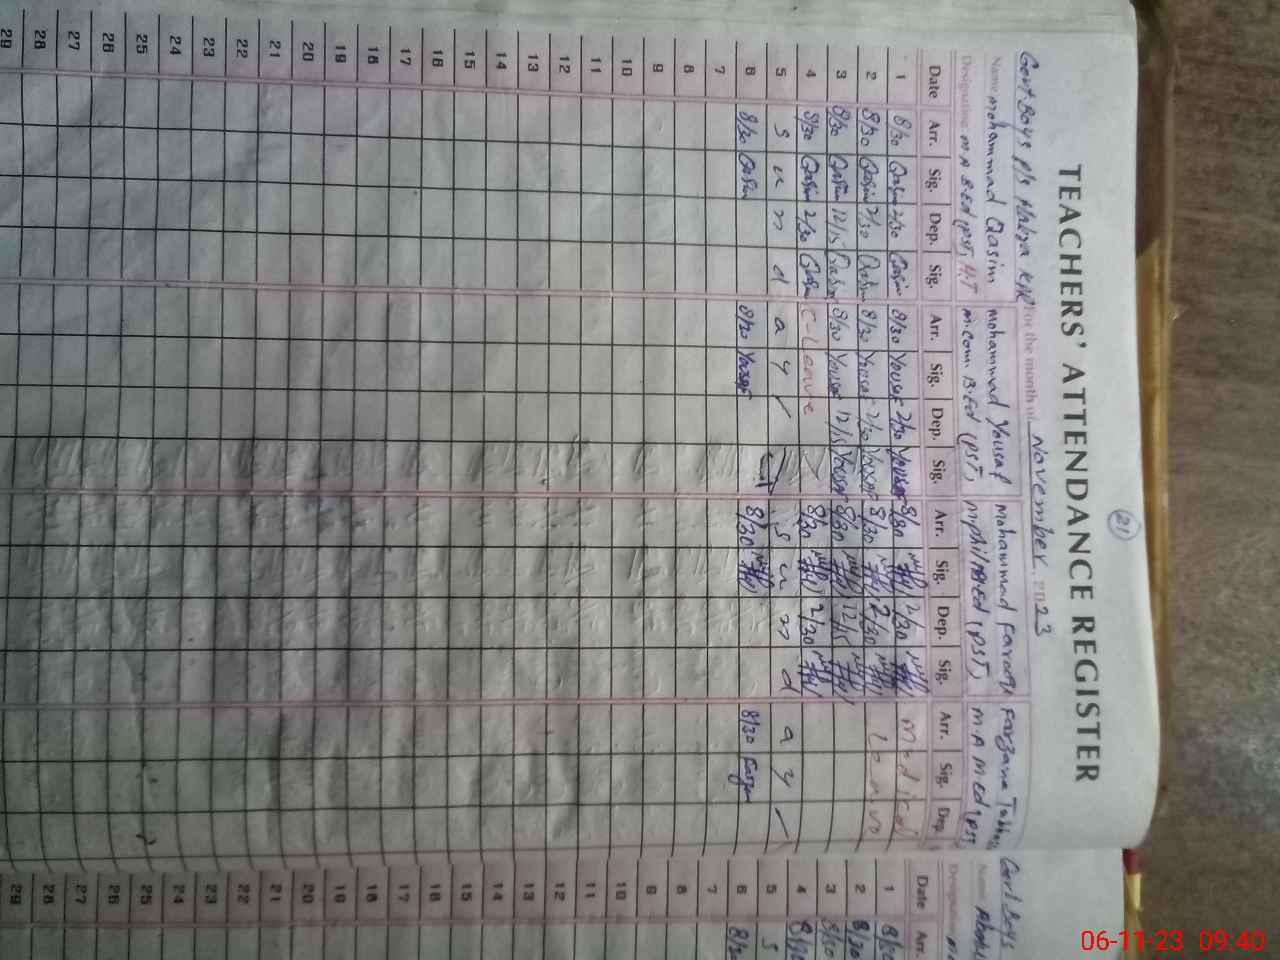 21
TEACHERS' ATTENDANCE REGISTER
Govt. Boys P/S For the month of November 2023
Name Mohammad Qasim Mohammad Yousaf Mohammad Farooq Farzana
Designation M A B.Ed (PST) H.T M.Com. B.Ed (PST) (PST) M A M Ed (PST
Date Arr. Sig. Dep. Sig. Arr. Sig. Dep. Sig. Arr. Sig. Dep. Sig. Arr. Sig. Dep.
1 8/30 Qasim 2/30 Qasim 8/30 Yousaf 2/30 Yousaf 8/30 2/30 Medical
2 8/30 Qasim 2/30 Qasim 8/30 Yousaf 2/30 Yousaf 8/30 2/30 Leave
3 8/30 Qasim 12/15 Qasim 8/30 Yousaf 12/15 Yousaf 8/30 12/15
4 8/30 Qasim 2/30 Qasim C-Leave 8/30 2/30
5 S u n d a y S u n d a y
6 8/30 Qasim 8/30 Yousaf 8/30 8/30
7
8
9
10
11
12
13
14
15
16
17
18
19
20
21
22
23
24
25
26
27
28
29
Govt Boys
Name
Designation
Date Arr.
1 8/30
2 8/30
3 8/30
4 8/30
5 S
6 8/30
7
8
9
10
11
12
13
14
15
16
17
18
19
20
21
22
23
24
25
26
27
28
29
06-11-23 09:40